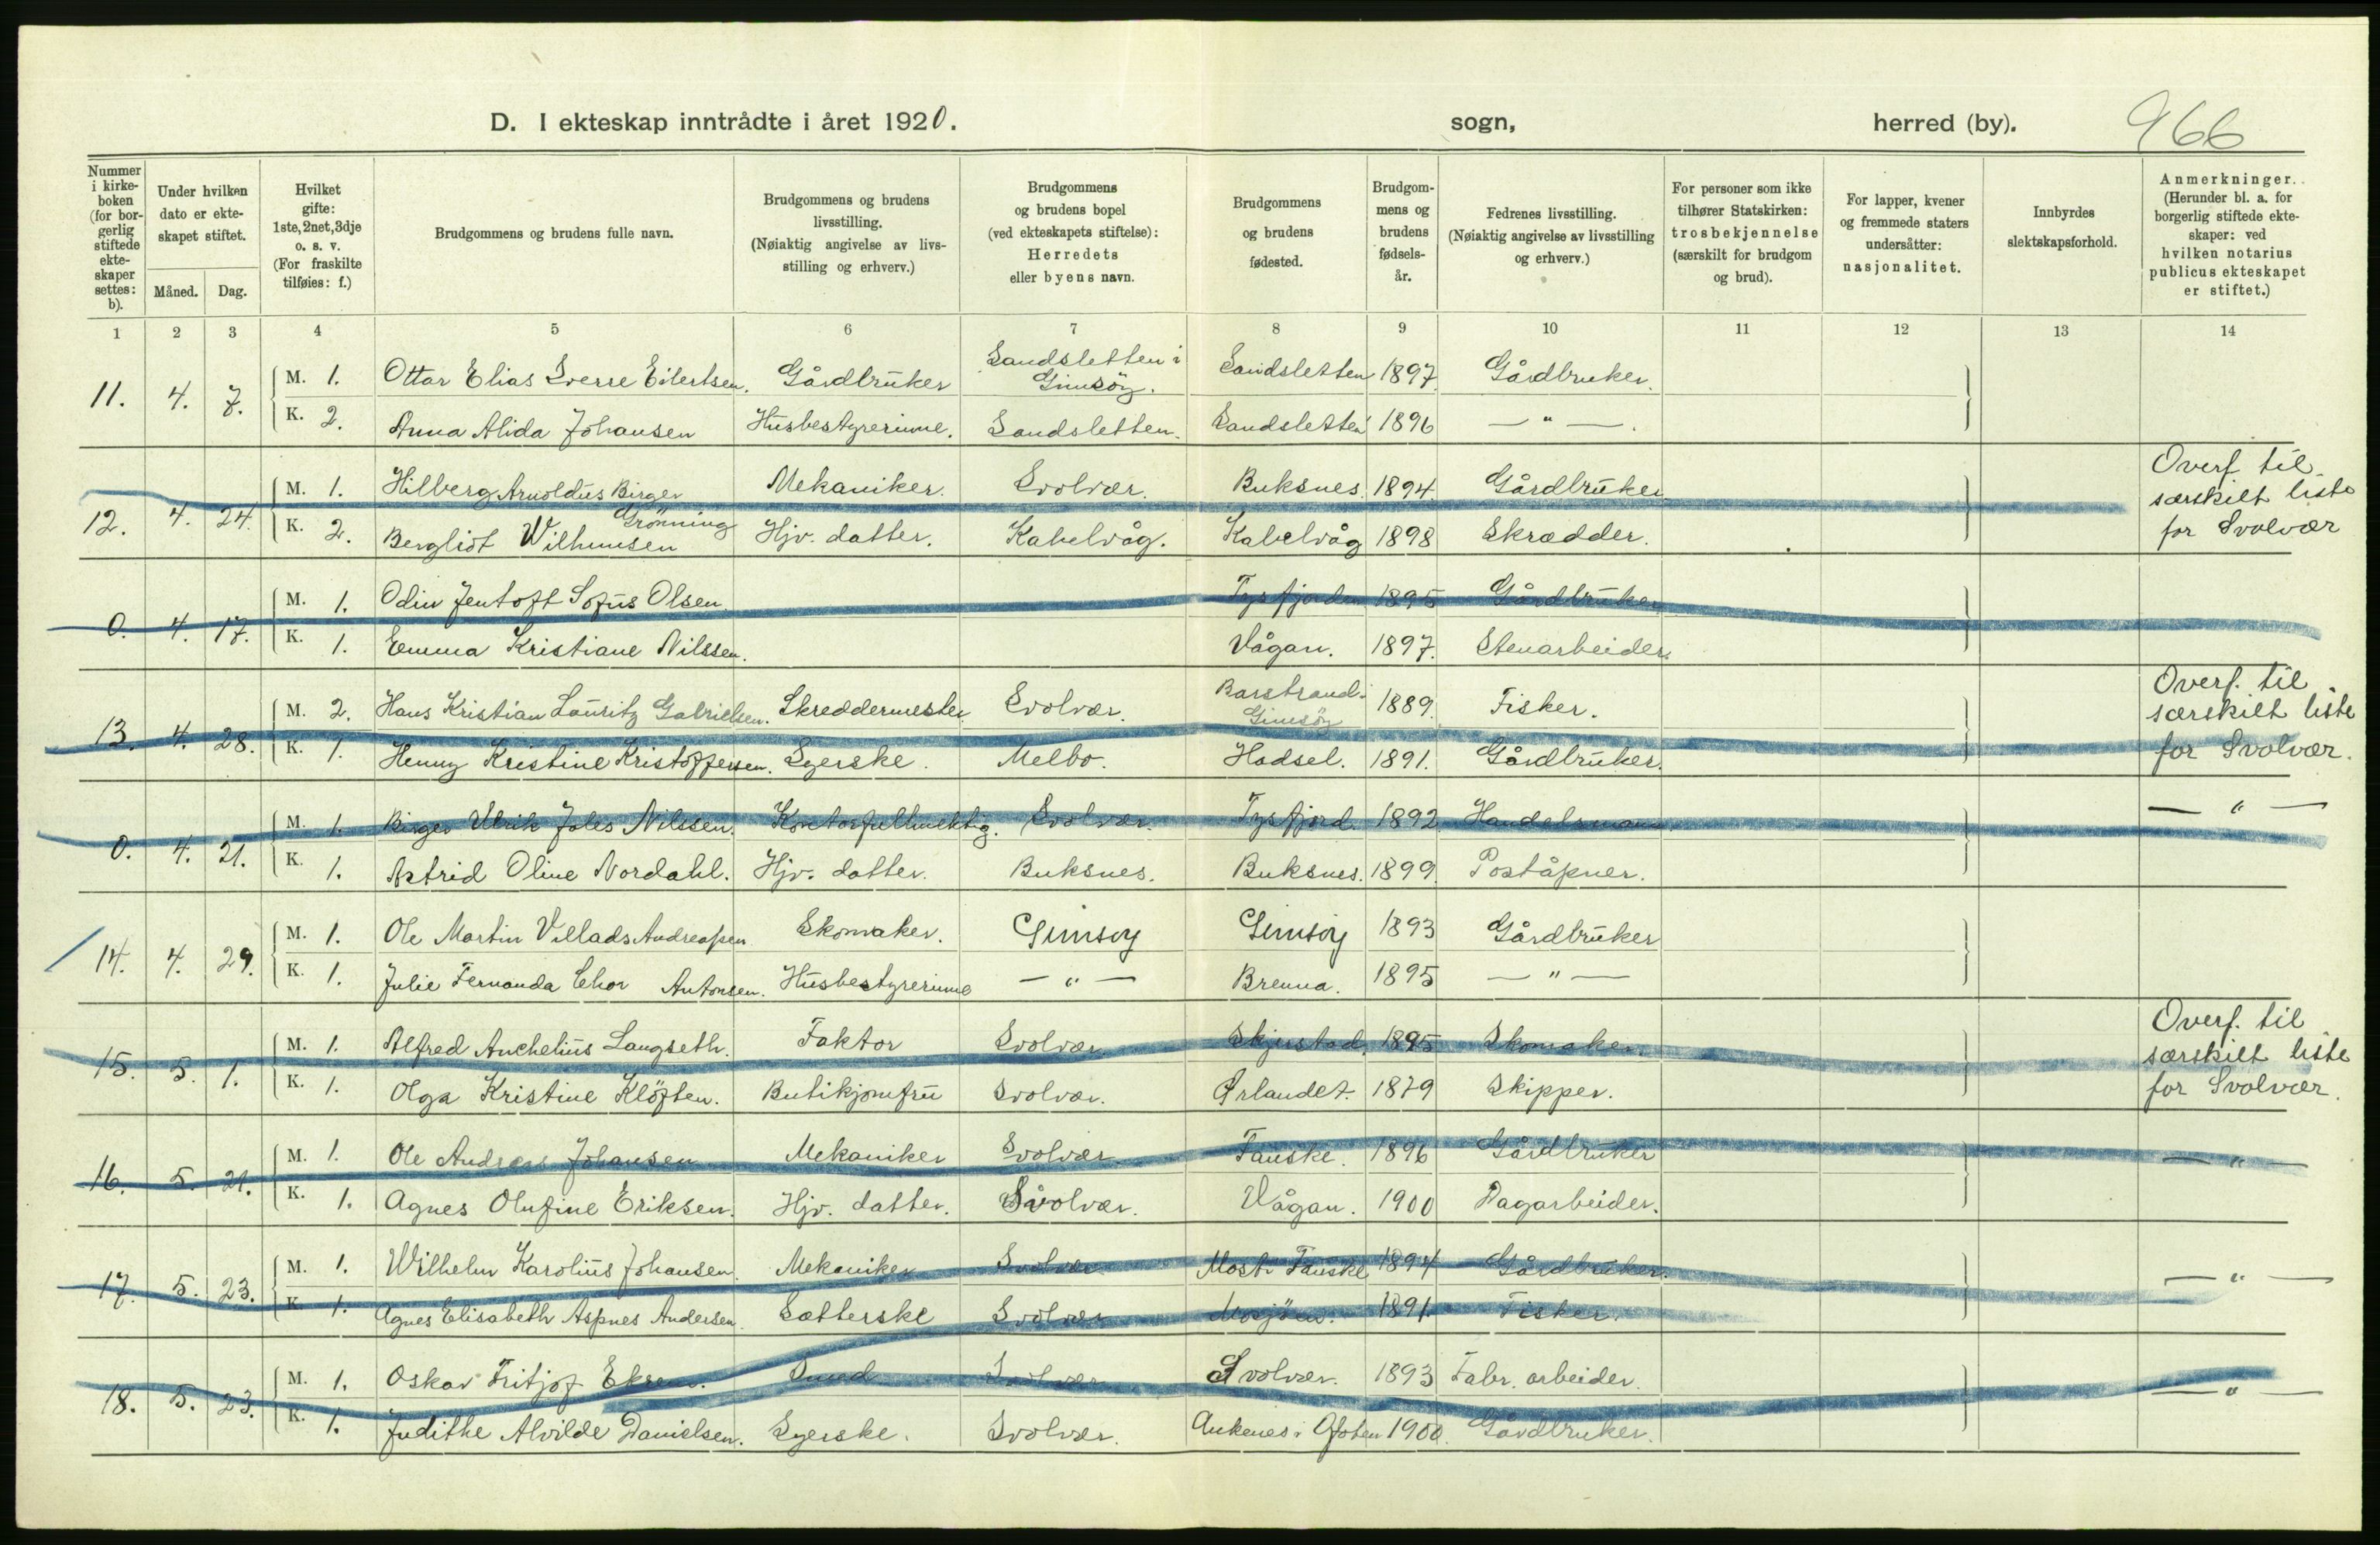 D. I ekteskap inntrådte i året 1920. sogn, herred (by). 966
Nummer i kirkeboken (for borgerlig stiftede ekteskaper settes: b). | Under hvilken dato er ekteskapet stiftet. Måned. Dag. | Hvilket gifte: 1ste, 2net, 3dje o. s. v. (For fraskilte tilføies: f.) | Brudgommens og brudens fulle navn. | Brudgommens og brudens livsstilling. (Nøiaktig angivelse av livsstilling og erhverv.) | Brudgommens og brudens bopel (ved ekteskapets stiftelse): Herredets eller byens navn. | Brudgommens og brudens fødested. | Brudgommens og brudens fødselsår. | Fedrenes livsstilling. (Nøiaktig angivelse av livsstilling og erhverv.) | For personer som ikke tilhører Statskirken: trosbekjennelse (særskilt for brudgom og brud). | For lapper, kvener og fremmede staters undersåtter: nasjonalitet. | Innbyrdes slektskapsforhold. | Anmerkninger. (Herunder bl. a. for borgerlig stiftede ekteskaper: ved hvilken notarius publicus ekteskapet er stiftet.)
1 2 3 4 5 6 7 8 9 10 11 12 13 14
11. 4. 7. M. 1. Ottar Elias Sverre Eilertsen. Gårdbruker Sandsletten i Gimsöy. Sandsletten 1897. Gårdbruker.
K. 2. Anna Alida Johansen Husbestyrerinne. Sandsletten. Sandsletten 1896 — " —.
12. 4. 24. M. 1. Hilberg Arnoldus Birger Grönning Mekaniker. Svolvær. Buksnes. 1894. Gårdbruker Overf. til særskilt liste for Svolvær
K. 2. Bergliot Wilhumsen Hjv. datter. Kabelvåg. Kabelvåg 1898 Skrædder.
0. 4. 17. M. 1. Odin Jentoft Sofus Olsen. Tysfjorden 1895 Gårdbruker
K. 1. Emma Kristiane Nilssen. Vågan. 1897. Stenarbeider.
13. 4. 28. M. 2. Hans Kristian Lauritz Gabrielsen. Skreddermester Svolvær. Barstrand i Gimsöy 1889. Fisker. Overf. til særskilt liste for Svolvær.
K. 1. Henny Kristine Kristoffersen. Syerske. Melbo. Hadsel. 1891. Gårdbruker.
0. 4. 21. M. 1. Birger Ulrik Joles Nilssen. Kontorfullmektig. Svolvær. Tysfjord. 1892 Handelsmann. — " —
K. 1. Astrid Oline Nordahl. Hjv. datter. Buksnes. Buksnes. 1899. Poståpner.
14. 4. 29. M. 1. Ole Martin Villads Andreassen Skomaker. Gimsöy Gimsöy 1893 Gårdbruker
K. 1. Julie Fernanda Antonsen. Husbestyrerinne — " — Brenna. 1895 — " —
15. 5. 1. M. 1. Alfred Anchelius Langseth. Faktor Svolvær. Skjerstad. 1895 Skomaker. Overf. til særskilt liste for Svolvær.
K. 1. Olga Kristine Klöften. Butikjomfru Svolvær. Ørlandet. 1879 Skipper.
16. 5. 21. M. 1. Ole Andreas Johansen Mekaniker Svolvær. Fauske. 1896 Gårdbruker — " —
K. 1. Agnes Olufine Eriksen. Hjv. datter. Svolvær. Vågan. 1900 Dagarbeider.
17. 5. 23. M. 1. Wilhelm Karolius Johansen. Mekaniker Svolvær Fauske 1894 Gårdbruker. — " —
K. 1. Agnes Elisabeth Aspnes Andersen. Sætterske Svolvær Mosjöen. 1891. Fisker.
18. 5. 23. M. 1. Oskar Fritjof Ekrem. Smed Svolvær Svolvær. 1893 Fabr. arbeider. — " —
K. 1. Judithe Alvilde Danielsen. Syerske. Svolvær. Ankenes i Ofoten 1900. Gårdbruker.